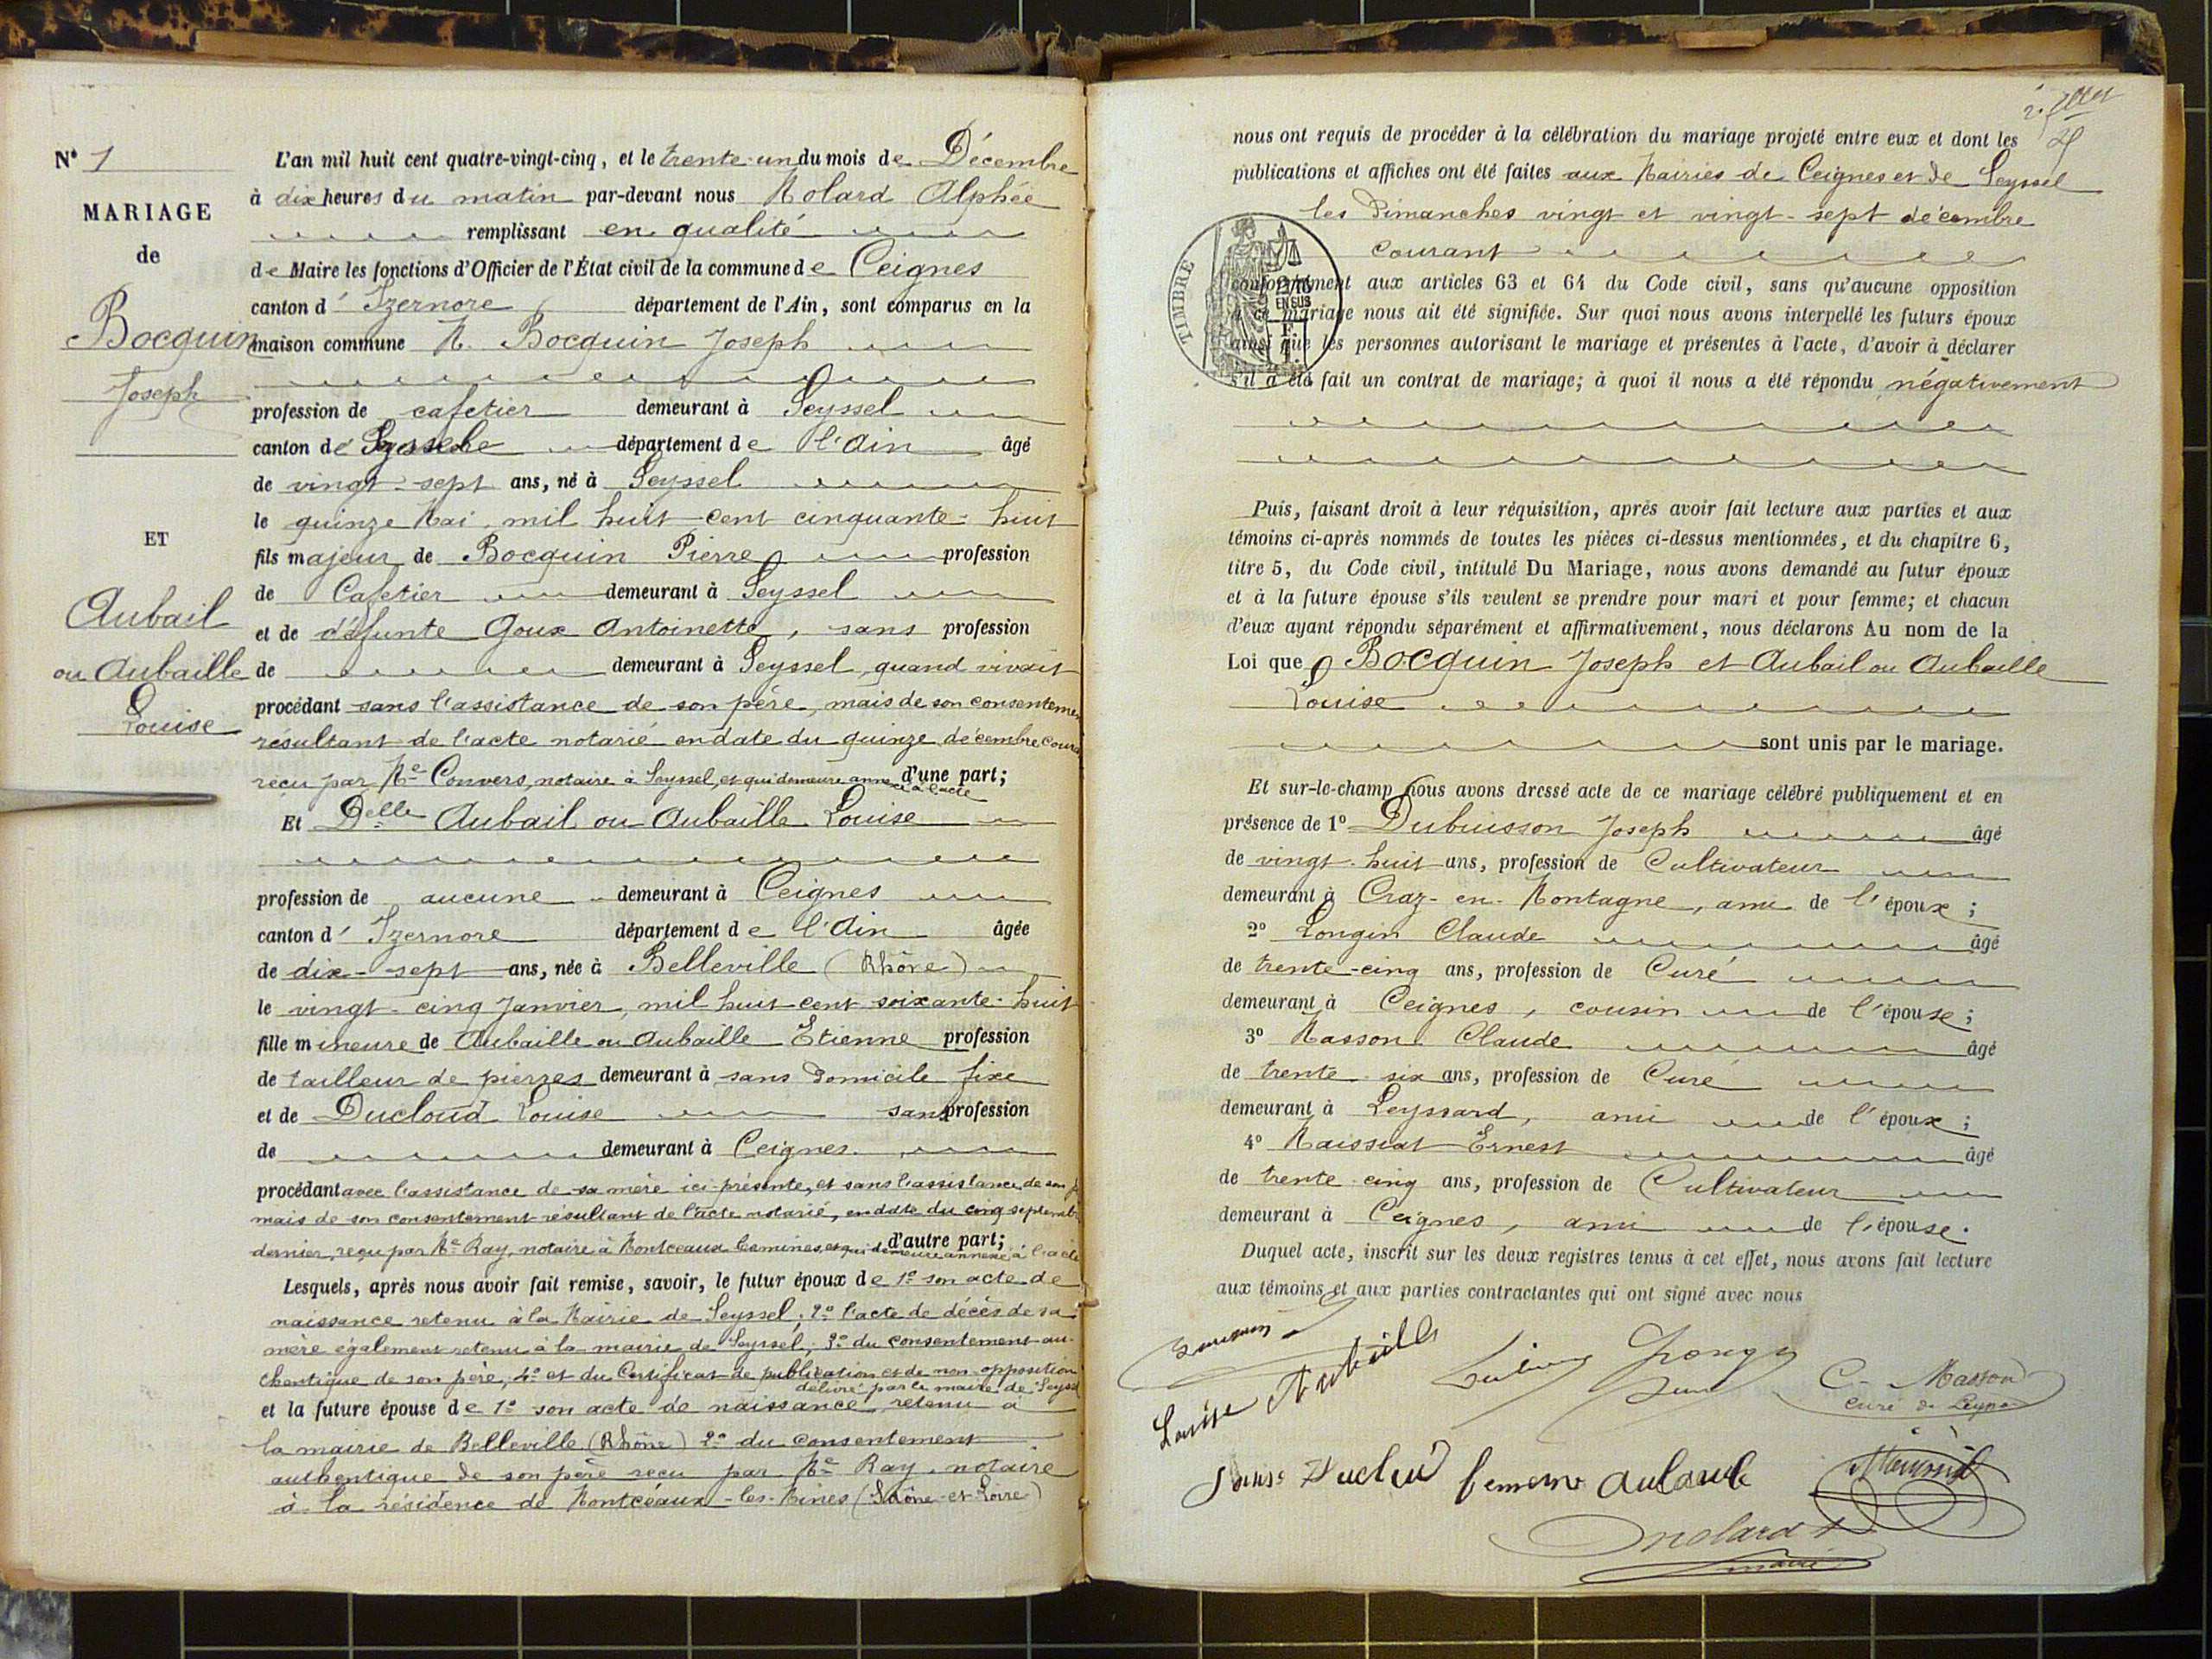 N° 1
MARIAGE
de
Bocquin
Joseph
ET
Aubail
ou Aubaille
Louise
L'an mil huit cent quatre-vingt-cinq, et le trente-un du mois de Décembre
à dix heures du matin par-devant nous Molard Alphée
remplissant en qualité
de Maire les fonctions d'Officier de l'État civil de la commune de Ceignes
canton d'Izernore département de l'Ain, sont comparus en la
maison commune M. Bocquin Joseph
profession de cafetier demeurant à Seyssel
canton de département de l'Ain âgé
de vingt-sept ans, né à Seyssel
le quinze Mai, mil huit cent cinquante-huit
fils majeur de Bocquin Pierre profession
de Cafetier demeurant à Seyssel
et de défunte Goux Antoinette, sans profession
de demeurant à Seyssel, quand vivait
procédant sans l'assistance de son père, mais de son consentemen
résultant de l'acte notarié en date du quinze décembre coura
reçu par Me Convers, notaire à Seyssel, et qui demeure annexé à l'acte d'une part;
Et Delle Aubail ou Aubaille Louise
profession de aucune demeurant à Ceignes
canton d'Izernore département de l'Ain âgée
de dix-sept ans, née à Belleville (Rhône)
le vingt-cinq Janvier, mil huit cent soixante-huit
fille mineure de Aubaille ou Aubaille Etienne profession
de tailleur de pierres demeurant à sans domicile fixe
et de Ducloud Louise sans profession
de demeurant à Ceignes
procédant avec l'assistance de sa mère ici présente, et sans l'assistance de son p
mais de son consentement résultant de l'acte notarié, en date du cinq septemb
dernier, reçu par Me Ray, notaire à Montceaux les mines, et qui demeure annexé à l'acte d'autre part;
Lesquels, après nous avoir fait remise, savoir, le futur époux de 1° son acte de
naissance retenu à la Mairie de Seyssel; 2° l'acte de décès de sa
mère également retenu à la mairie de Seyssel; 3° du consentement au-
thentique de son père, 4° et du Certificat de publication et de non-opposition
délivré par le maire de Seyssel
et la future épouse de 1° son acte de naissance, retenu à
la mairie de Belleville (Rhône) 2° du consentement
authentique de son père reçu par Me Ray, notaire
à la résidence de Montceaux-les-Mines (Saône-et-Loire)
nous ont requis de procéder à la célébration du mariage projeté entre eux et dont les
publications et affiches ont été faites aux Mairies de Ceignes et de Seyssel
les Dimanches vingt et vingt-sept décembre
courant
TIMBRE
2/10
EN SUS
conformément aux articles 63 et 64 du Code civil, sans qu'aucune opposition
à ce mariage nous ait été signifiée. Sur quoi nous avons interpellé les futurs époux
ainsi que les personnes autorisant le mariage et présentes à l'acte, d'avoir à déclarer
s'il a été fait un contrat de mariage; à quoi il nous a été répondu négativement
Puis, faisant droit à leur réquisition, après avoir fait lecture aux parties et aux
témoins ci-après nommés de toutes les pièces ci-dessus mentionnées, et du chapitre 6,
titre 5, du Code civil, intitulé Du Mariage, nous avons demandé au futur époux
et à la future épouse s'ils veulent se prendre pour mari et pour femme; et chacun
d'eux ayant répondu séparément et affirmativement, nous déclarons Au nom de la
Loi que Bocquin Joseph et Aubail ou Aubaille
Louise
sont unis par le mariage.
Et sur-le-champ nous avons dressé acte de ce mariage célébré publiquement et en
présence de 1° Dubuisson Joseph âgé
de vingt-huit ans, profession de Cultivateur
demeurant à Craz-en-Montagne, ami de l'époux;
2° Longin Claude âgé
de trente-cinq ans, profession de Curé
demeurant à Ceignes, cousin de l'épouse;
3° Masson Claude âgé
de trente-six ans, profession de Curé
demeurant à Leyssard, ami de l'époux;
4° Maissiat Ernest âgé
de trente-cinq ans, profession de Cultivateur
demeurant à Ceignes, ami de l'épouse.
Duquel acte, inscrit sur les deux registres tenus à cet effet, nous avons fait lecture
aux témoins et aux parties contractantes qui ont signé avec nous
Louise Aubaille
C. Masson
curé de
femme
Molard
maire